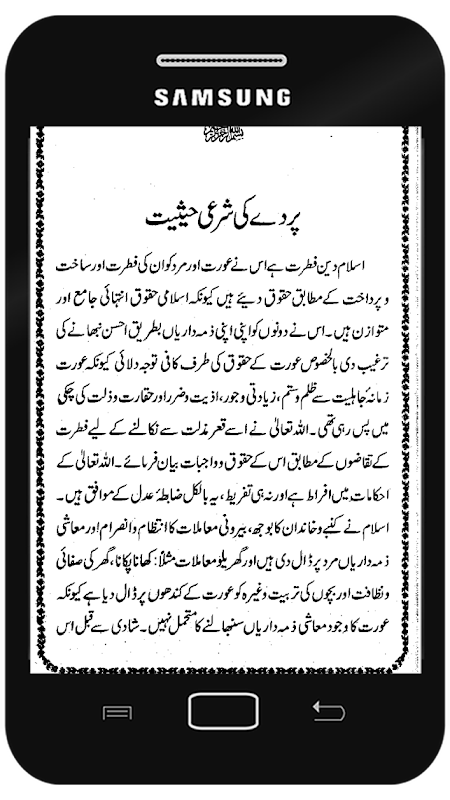 SAMSUNG
بسم اللہ الرحمن الرحیم
پردے کی شرعی حیثیت
اسلام دین فطرت ہے اس نے عورت اور مرد کو ان کی فطرت اور ساخت
و پرداخت کے مطابق حقوق دیئے ہیں کیونکہ اسلامی حقوق انتہائی جامع اور
متوازن ہیں۔ اس نے دونوں کو اپنی اپنی ذمہ داریاں بطریق احسن نبھانے کی
ترغیب دی بالخصوص عورت کے حقوق کی طرف کافی توجہ دلائی کیونکہ عورت
زمانۂ جاہلیت سے ظلم و ستم، زیادتی و جور، اذیت و ضرر اور حقارت و ذلت کی چکی
میں پس رہی تھی۔ اللہ تعالیٰ نے اسے قعر مذلت سے نکالنے کے لیے فطرت
کے تقاضوں کے مطابق اس کے حقوق و واجبات بیان فرمائے۔ اللہ تعالیٰ کے
احکامات میں افراط ہے اور نہ ہی تفریط، یہ بالکل ضابطۂ عدل کے موافق ہیں۔
اسلام نے کنبے و خاندان کا بوجھ، بیرونی معاملات کا انتظام و انصرام اور معاشی
ذمہ داریاں مرد پر ڈال دی ہیں اور گھریلو معاملات مثلاً: کھانا پکانا، گھر کی صفائی
و نظافت اور بچوں کی تربیت وغیرہ کو عورت کے کندھوں پر ڈال دیا ہے کیونکہ
عورت کا وجود معاشی ذمہ داریاں سنبھالنے کا متحمل نہیں۔ شادی سے قبل اس